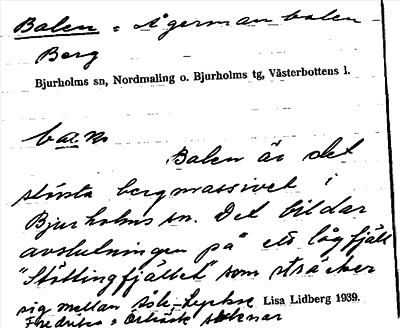 Balen = Ågermanbalen
Berg
Bjurholms sn, Nordmaling o. Bjurholms tg, Västerbottens l.
Balen är det
största bergmassivet i
Bjurholms sn. Det bildar
avslutningen på ett lågfjäll
"Stöttingfjället" som sträcker
sig mellan Åsele-Lycksele Lisa Lidberg 1939.
Fredrika = Örträsk socknar